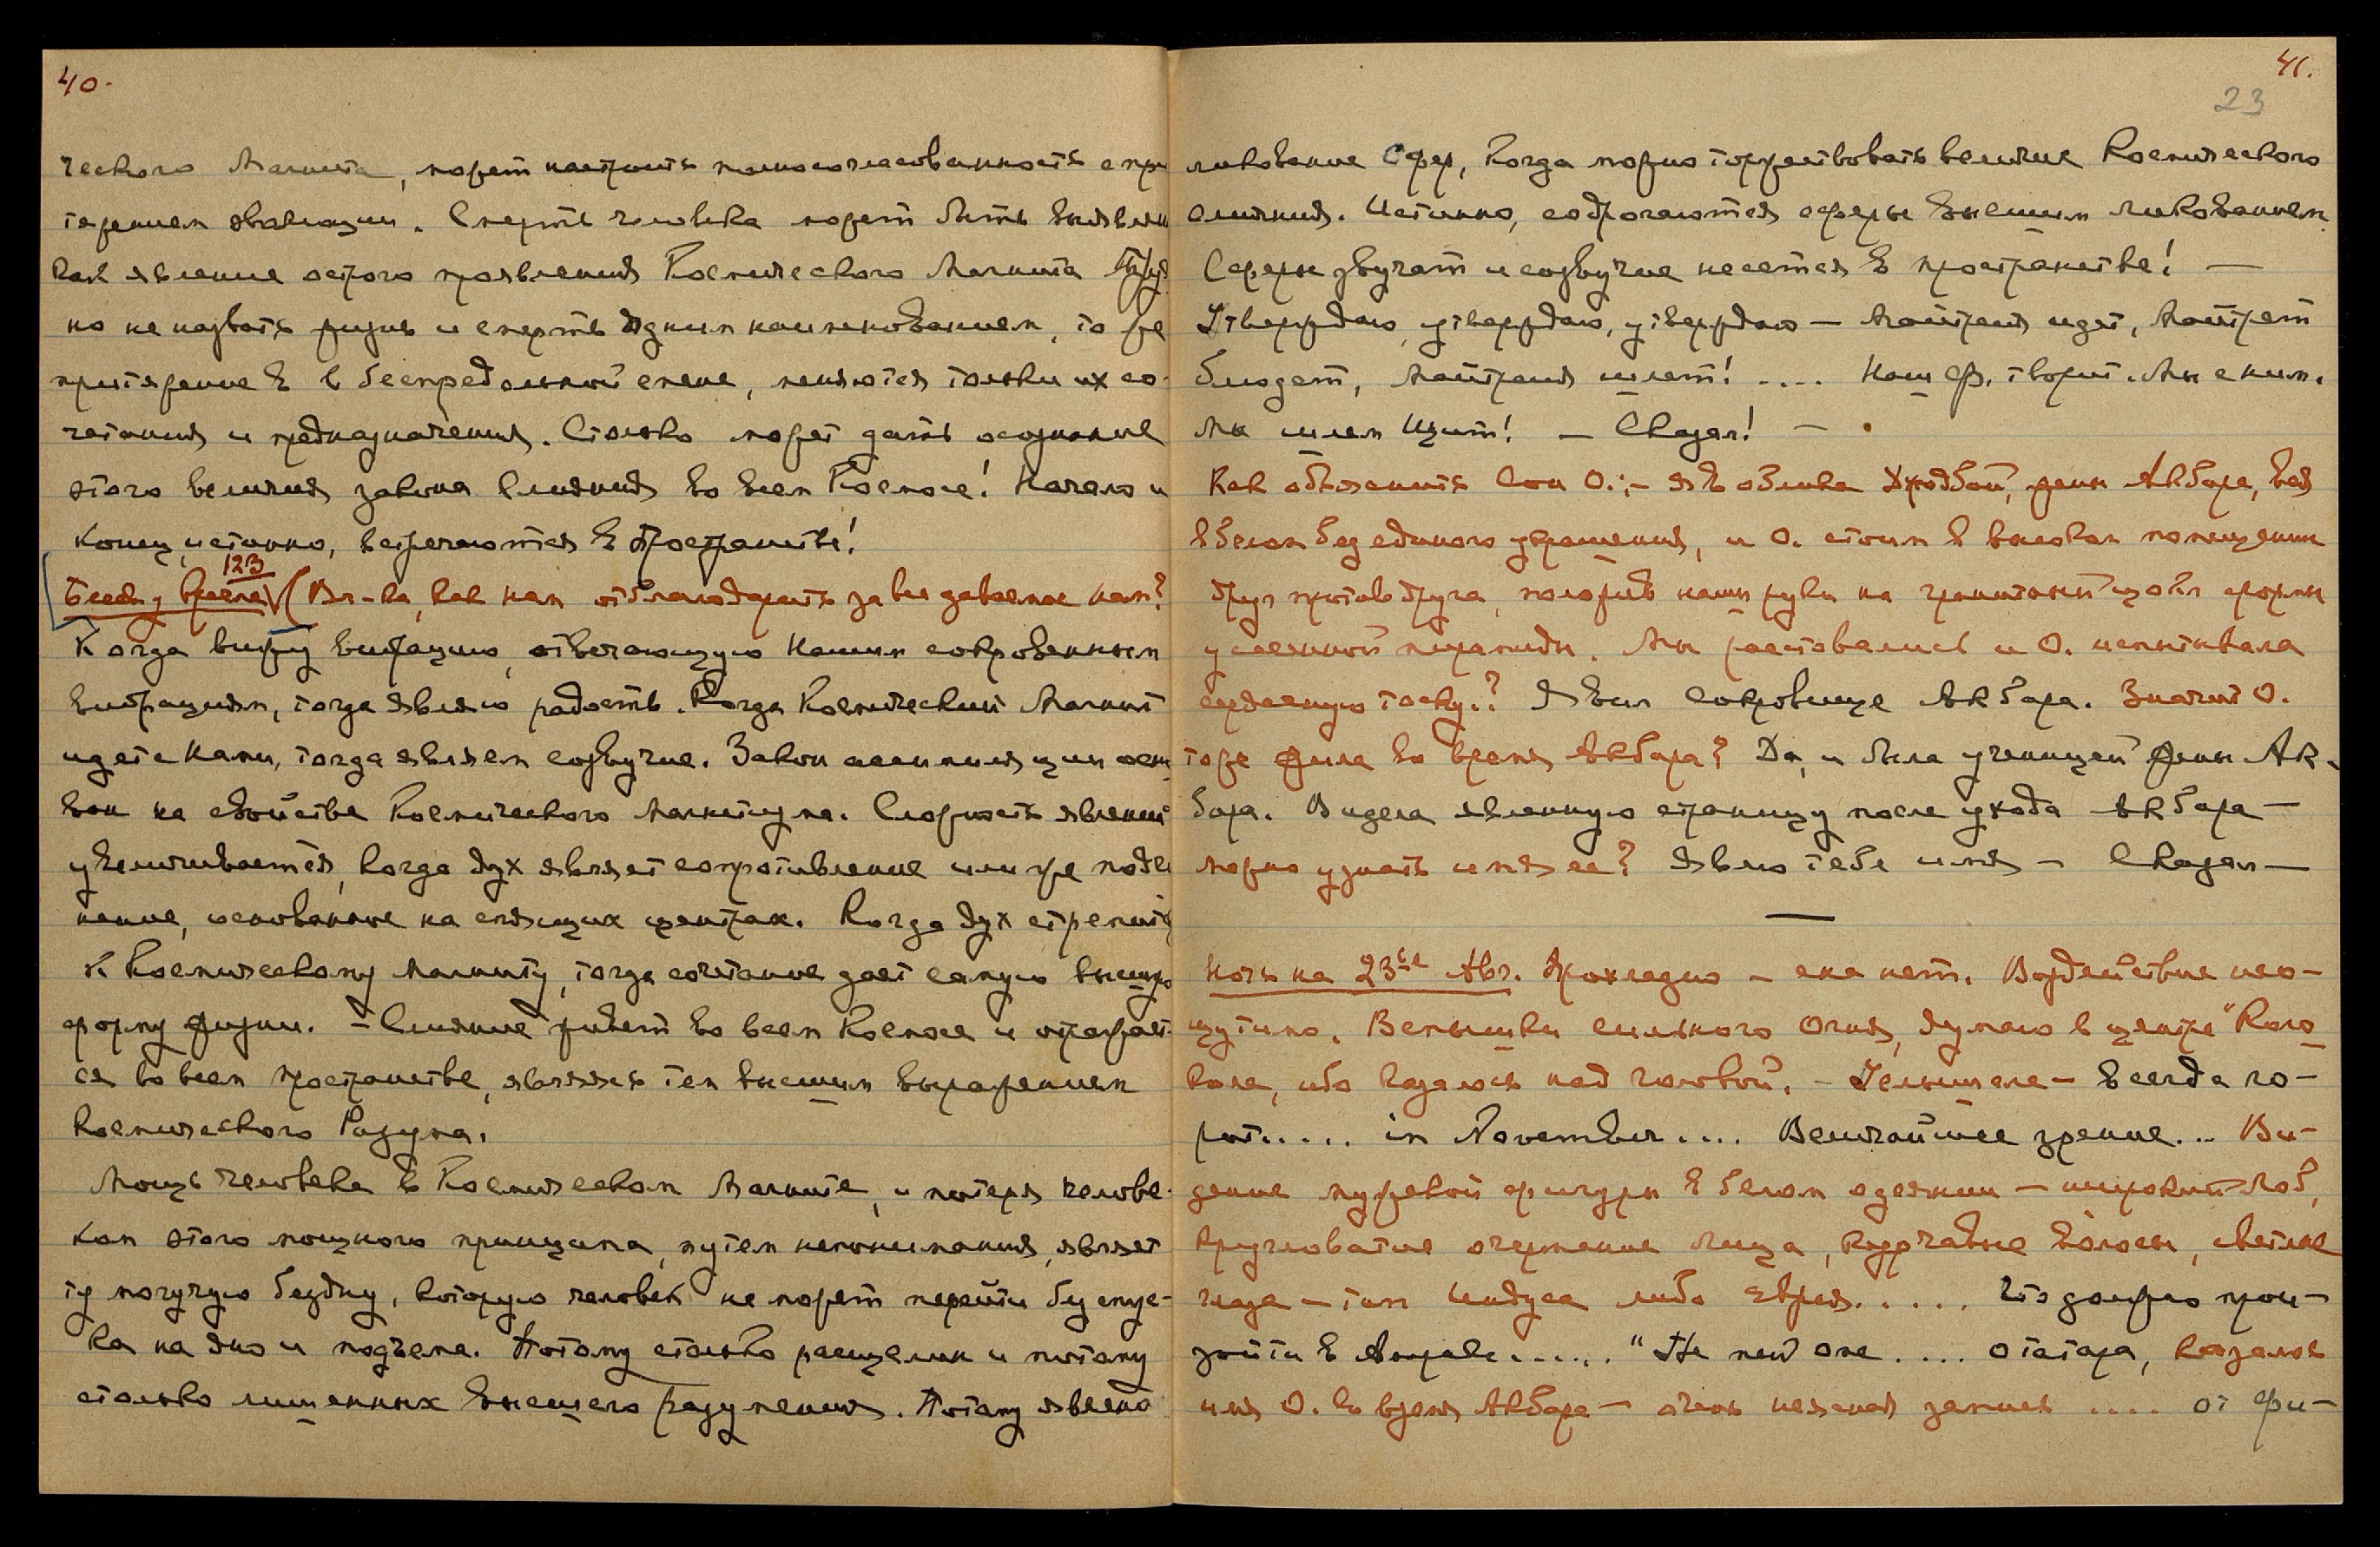 40.
ческого Магнита, может настроить полносогласованность с при
тяжением эволюции. Смерть человека может быть выявлена
как явление острого проявления Космического Магнита.
но не назвать жизнь и смерть одним наименованием, то же
притяжение в беспредельной смене, меняются только их со-
четания и предназначения. Столько может дать осознание
этого величия закона слияния во всем Космосе! Начало и
конец, истинно, встречаются в Пространстве!
123
(Вл-ка, как нам отблагодарить за все даваемое нам?
Когда вижу вибрацию, отвечающую Нашим сокровенным
вибрациям, тогда являю радость. Когда Космический Магнит
идет с Нами, тогда являем созвучие. Закон ассимиляции осно
ван на свойстве Космического Магнетизма. Сложность явлений
увеличивается, когда дух являет сопротивление или же подчи
нение, основанное на спящих центрах. Когда дух стремится
к Космическому Магниту, тогда сочетание дает самую высшую
форму жизни. – Слияние живет во всем Космосе и отражает-
ся во всем пространстве, являясь тем высшим выражением
Космического Разума.
Мощь человека в Космическом Магните, и потеря челове-
ком этого мощного принципа, путем непонимания, являет
ту могучую бездну, которую человек не может перейти без спус-
ка на дно и подъема. Потому столько расщелин и потому
столько лишенных высшего разумения. Потому явлено
41.
23
ликование Сфер, когда можно торжествовать величие Космического
слияния. Истинно, содрогаются сферы высшим ликованием.
Сферы звучат и созвучие несется в пространстве! —
Утверждаю, утверждаю, утверждаю — Майтрейя идет, Майтрейя
блюдет, Майтрейя шлет! .... Наш Ф. творит. Мы с ним.
Мы шлем Щит! — Сказал! —
Как объяснить Сон О.; – я в облике Джодбай, жены Акбара, вся
в белом без единого украшения, и О. стоим в высоком помещении
друг против друга, положив наши руки на гранитный цоколь формы
усеченной пирамиды. Мы расставались и О. испытывала
сердечную тоску.? Явил сокровище Акбара. Значит О.
тоже жила во время Акбара? Да, и была ученицей жены Ак-
бара. Видела явленную страницу после ухода Акбара —
можно узнать имя ее? Явлю тебе имя — Сказал —
Ночь на 23ье Авг. Прохладно — сна нет. Воздействие неощ-
щутимо. Вспышки сильного Огня, думаю в центре "Коло
кола, ибо казалось над головой. – Услышала – Всегда го-
рит..... in November.... Величайшее зрение... Ви-
дение мужской фигуры в белом одеянии — широкий лоб,
кругловатые очертание лица, кудрчавые волосы, светлые
глаза – тип Индуса либо Еврея..... Что должно прои-
зойти в Январе...... "The new one .... отатара, казалось
имя О. во время Акбара — очень неясная запись .... от фи-